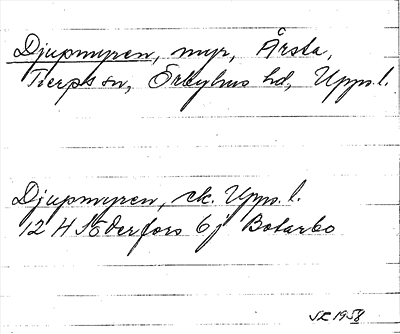 Djupmyren, myr, Årsta,
Tierps sn, Örbyhus hd, Upps. l.
Djupmyren, ek. Upps. l.
12 H Söderfors 6 j Botarbo
1958